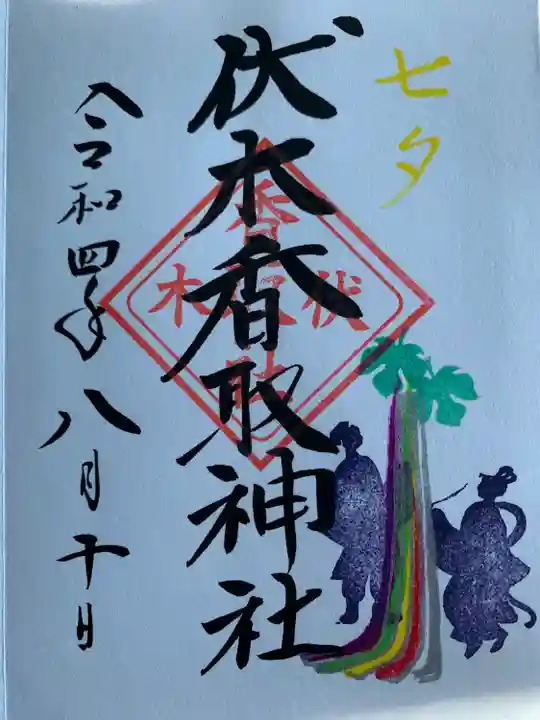 七夕
伏木香取神社
伏木香取神社
令和四年八月十日